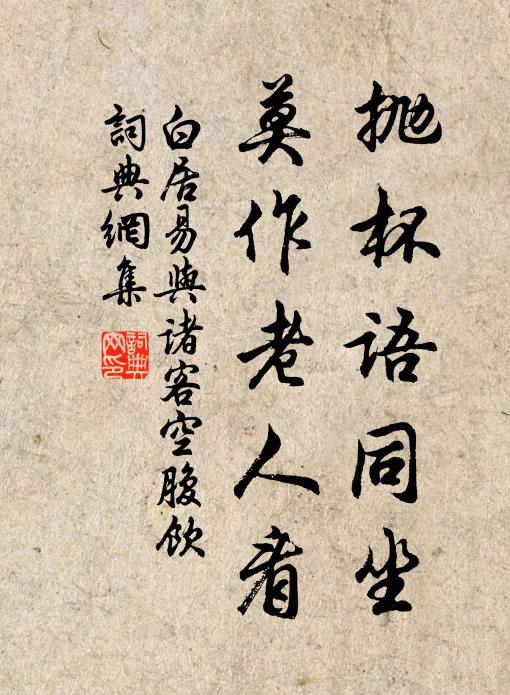 抛杯語同坐
莫作老人看
白居易與諸客空腹飲
詞典網集
詞典网印